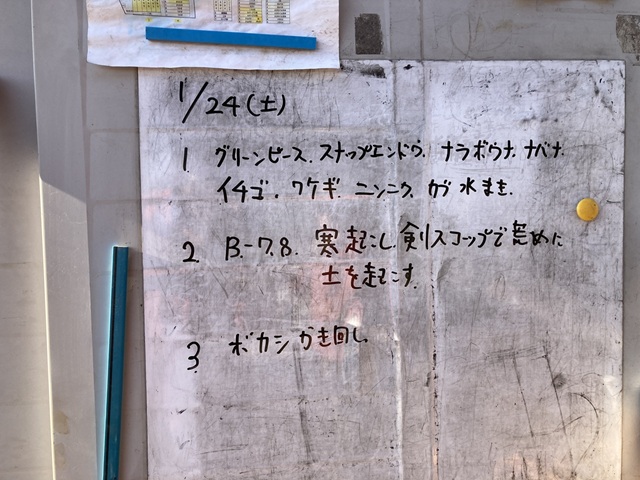 1/24(土)
1 グリーンピース. スナップエンドウ. ナラボウナ. ナバナ.
イチゴ. ワケギ. ニンニク. が 水まき.
2 B-7.8. 寒起こし. 剣スコップで荒めに
土を起こす.
3 ボカシ かき回し